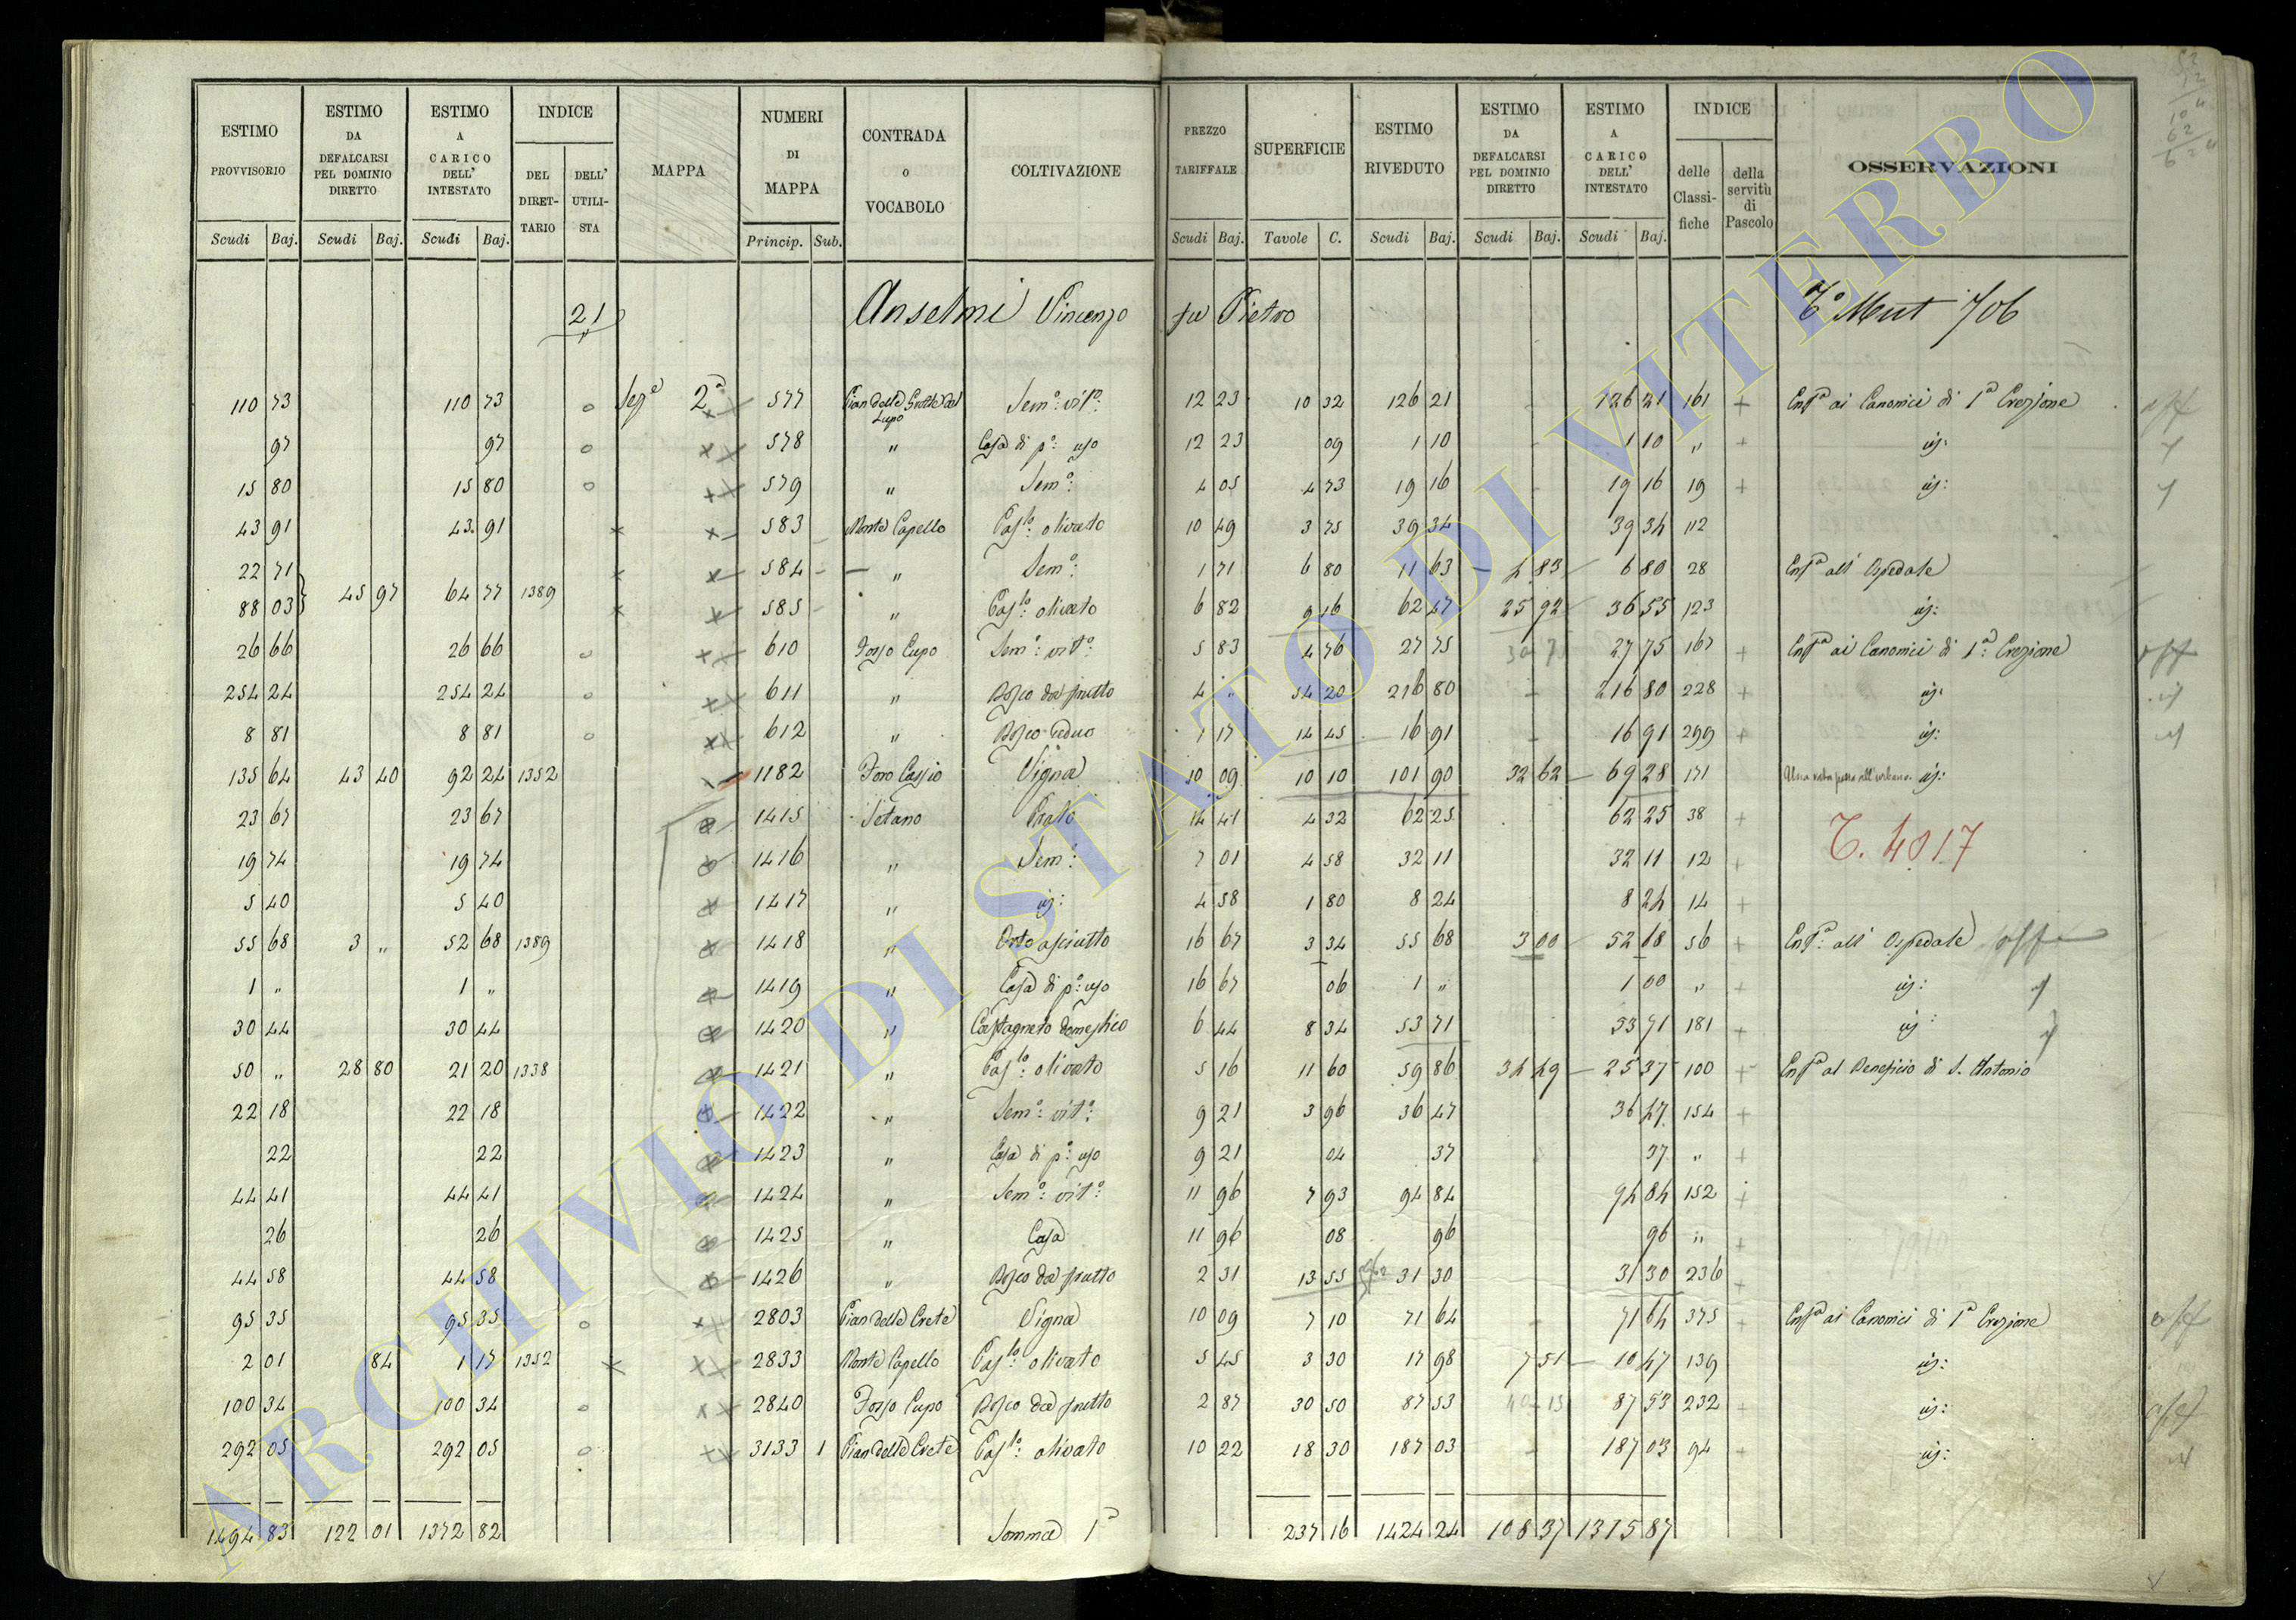 ESTIMO PROVVISORIO | ESTIMO DA DEFALCARSI PEL DOMINIO DIRETTO | ESTIMO A CARICO DELL' INTESTATO | INDICE DEL DIRETTARIO | DELL' UTILISTA | MAPPA | NUMERI DI MAPPA | CONTRADA o VOCABOLO | COLTIVAZIONE | PREZZO TARIFFALE | SUPERFICIE | ESTIMO RIVEDUTO | ESTIMO DA DEFALCARSI PEL DOMINIO DIRETTO | ESTIMO A CARICO DELL' INTESTATO | INDICE delle Classifiche | della servitù di Pascolo | OSSERVAZIONI
Scudi | Baj. | Scudi | Baj. | Scudi | Baj. | Princip. | Sub. | Scudi | Baj. | Tavole | C. | Scudi | Baj. | Scudi | Baj. | Scudi | Baj.
21 Anselmi Vincenzo fu Pietro T° Mut 706
110 73 | 110 73 | o | Sezᵉ 2ª | 577 | Pian delle Grotte del Lupo | Semº: vitº: | 12 23 | 10 32 | 126 21 | 126 21 | 161 | + | Enfª ai Canonici di 1ª Erezione
97 | 97 | o | 578 | " | Casa di pº: uso | 12 23 | 09 | 1 10 | 1 10 | " | + | id:
15 80 | 15 80 | o | 579 | " | Semº: | 4 05 | 4 73 | 19 16 | 19 16 | 19 | + | id:
43 91 | 43 91 | × | 583 | Monte Capello | Casᵗᵒ: olivato | 10 49 | 3 75 | 39 34 | 39 34 | 112
22 71 | × | 584 | " | Semº: | 1 71 | 6 80 | 11 63 | 4 83 | 6 80 | 28 | Enfª all' Ospedale
88 03 | 45 97 | 64 77 | 1389 | × | 585 | " | Casᵗᵒ: olivato | 6 82 | 9 16 | 62 47 | 25 92 | 36 55 | 123 | id:
26 66 | 26 66 | o | 610 | Fosso Cupo | Semº: vitº: | 5 83 | 4 76 | 27 75 | 27 75 | 167 | + | Enfª ai Canonici di 1ª: Erezione
254 24 | 254 24 | o | 611 | " | Bosco da frutto | 4 " | 54 20 | 216 80 | 216 80 | 228 | + | id:
8 81 | 8 81 | o | 612 | " | Bosco ceduo | 1 17 | 14 45 | 16 91 | 16 91 | 299 | + | id:
135 64 | 43 40 | 92 24 | 1352 | 1182 | Foro Cassio | Vigna | 10 09 | 10 10 | 101 90 | 32 62 | 69 28 | 171 | id:
23 67 | 23 67 | 1415 | Setano | Prato | 14 41 | 4 32 | 62 25 | 62 25 | 38 | + | T. 4017
19 74 | 19 74 | 1416 | " | Semº: | 7 01 | 4 58 | 32 11 | 32 11 | 12 | +
5 40 | 5 40 | 1417 | " | id: | 4 58 | 1 80 | 8 24 | 8 24 | 14 | +
55 68 | 3 " | 52 68 | 1389 | 1418 | " | Orto asciutto | 16 67 | 3 34 | 55 68 | 3 00 | 52 68 | 56 | + | Enfª: all' Ospedale
1 " | 1 " | 1419 | " | Casa di pº: uso | 16 67 | 06 | 1 " | 1 00 | " | + | id:
30 44 | 30 44 | 1420 | " | Castagneto domestico | 6 44 | 8 34 | 53 71 | 53 71 | 181 | + | id:
50 " | 28 80 | 21 20 | 1338 | 1421 | " | Casᵗᵒ: olivato | 5 16 | 11 60 | 59 86 | 34 49 | 25 37 | 100 | + | Enfª al Beneficio di S. Antonio
22 18 | 22 18 | 1422 | " | Semº: vitº: | 9 21 | 3 96 | 36 47 | 36 47 | 154 | +
22 | 22 | 1423 | " | Casa di pº: uso | 9 21 | 04 | 37 | 37 | " | +
44 41 | 44 41 | 1424 | " | Semº: vitº: | 11 96 | 7 93 | 94 84 | 94 84 | 152 | +
26 | 26 | 1425 | " | Casa | 11 96 | 08 | 96 | 96 | " | +
44 58 | 44 58 | 1426 | " | Bosco da frutto | 2 31 | 13 55 | 31 30 | 31 30 | 236 | +
95 35 | 95 35 | o | 2803 | Pian delle Crete | Vigna | 10 09 | 7 10 | 71 64 | 71 64 | 375 | + | Enfª ai Canonici di 1ª Erezione
2 01 | 84 | 1 17 | 1352 | × | 2833 | Monte Capello | Casᵗᵒ: olivato | 5 45 | 3 30 | 17 98 | 7 51 | 10 47 | 139 | id:
100 34 | 100 34 | o | 2840 | Fosso Cupo | Bosco da frutto | 2 87 | 30 50 | 87 53 | 87 53 | 232 | + | id:
292 05 | 292 05 | o | 3133 | 1 | Pian delle Crete | Casᵗᵒ: olivato | 10 22 | 18 30 | 187 03 | 187 03 | 94 | + | id:
1494 83 | 122 01 | 1372 82 | Somma 1ª | 237 16 | 1424 24 | 108 37 | 1315 87
ARCHIVIO DI STATO DI VITERBO